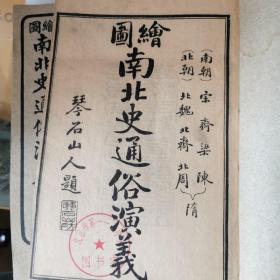 繪圖
南北史通俗演義
南朝 宋 齊 梁 陳
北朝 北魏 北齊 北周
隋
琴石山人題
圖繪
南北史通俗演